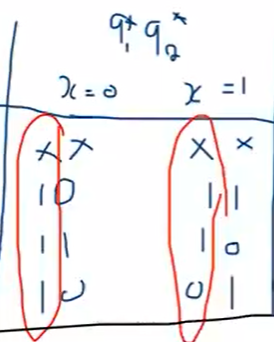 q₁* q₂*
x=0 x=1
x x x x
1 0 1 1
1 1 1 0
1 0 0 1